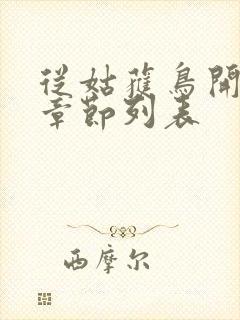 從姑蒦鳥開
章節列表
西摩尔